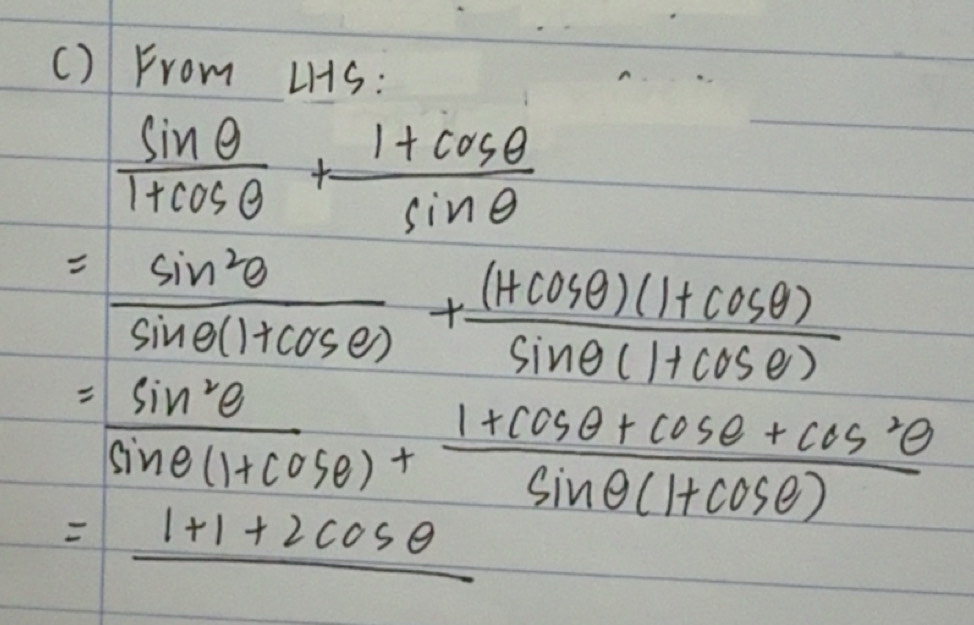 C) From LHS:
sin θ / 1+cos θ + 1+cosθ / sin θ
= sin²θ / sinθ(1+cos θ) + (1+cosθ)(1+cosθ) / sinθ(1+cos θ)
= sin²θ / sinθ(1+cosθ) + 1+cosθ+cosθ+cos²θ / sinθ(1+cosθ)
= 1+1+2cos θ